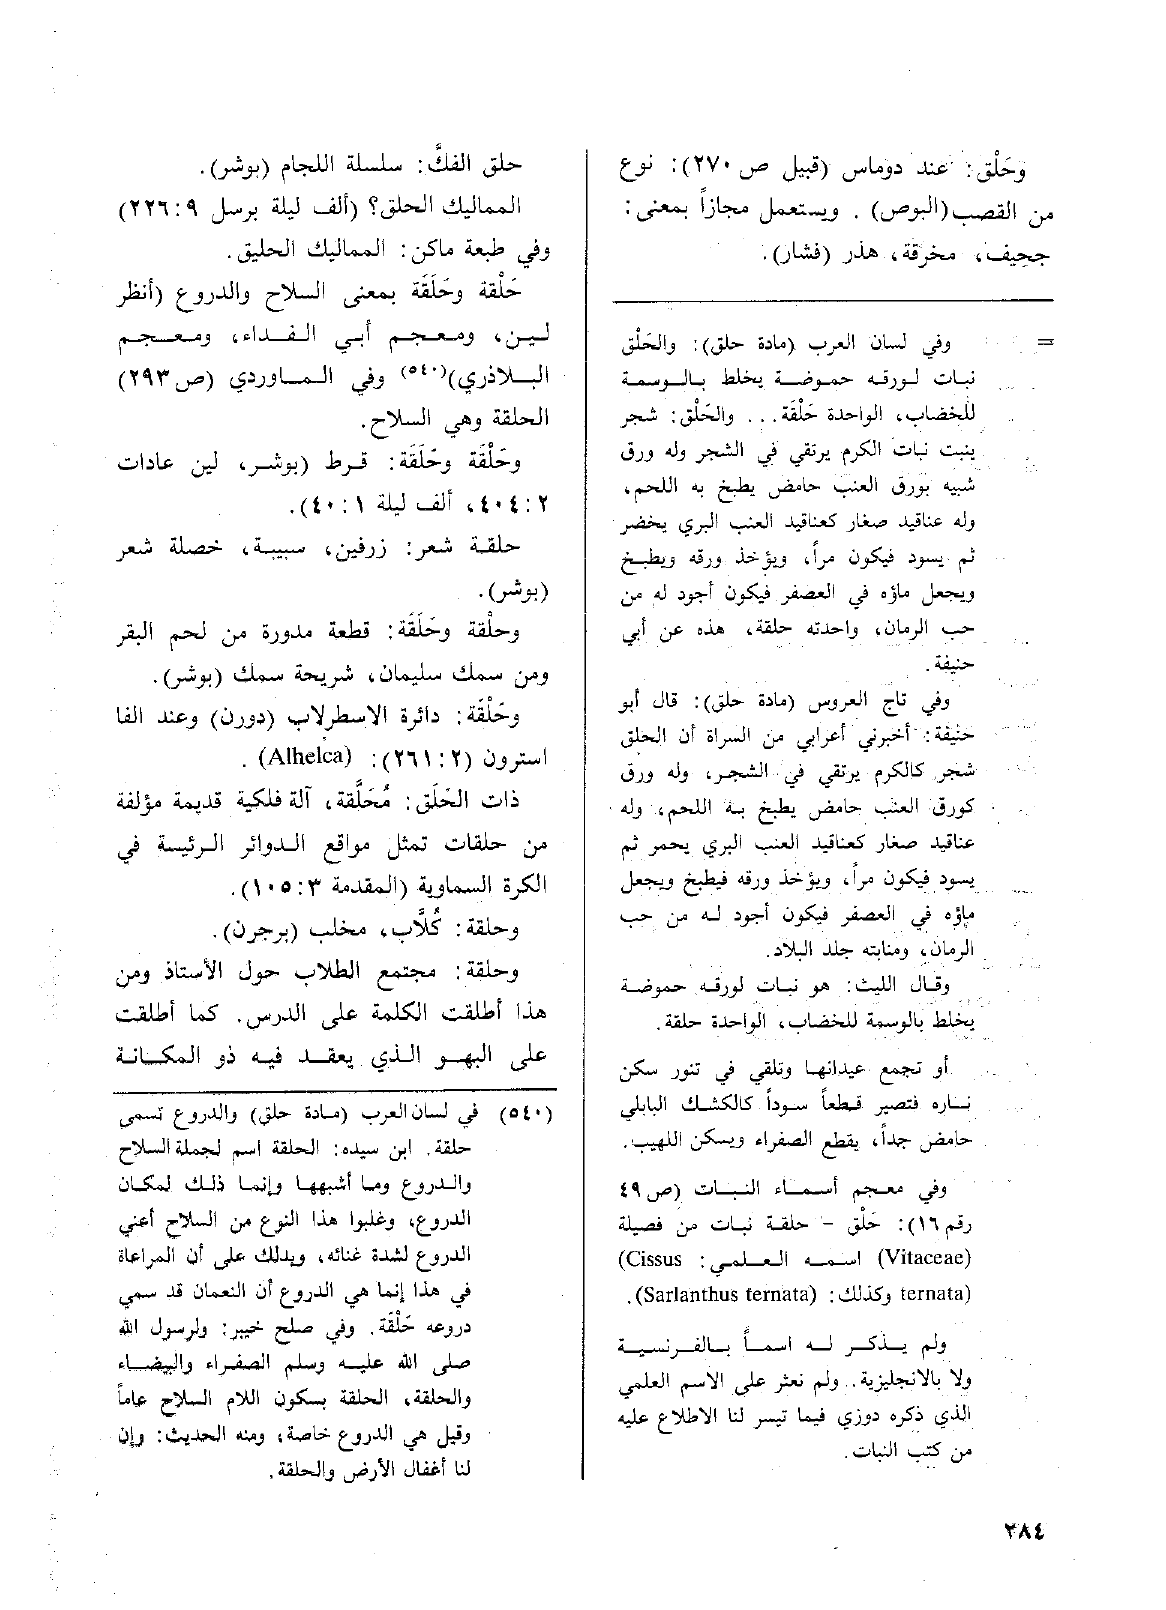 وحَلْق: عند دوماس (قبيل ص ٢٧٠): نوع
من القصب (البوص). ويستعمل مجازاً بمعنى:
جحيف، مخرقة، هذر (فشار).
= وفي لسان العرب (مادة حلق): والحَلْق
نبات لورقه حموضة يخلط بالوسمة
للخضاب، الواحدة حَلْقَة... والحَلْق: شجر
ينبت نبات الكرم يرتقي في الشجر وله ورق
شبيه بورق العنب حامض يطبخ به اللحم،
وله عناقيد صغار كعناقيد العنب البري يخضر
ثم يسود فيكون مراً، ويؤخذ ورقه ويطبخ
ويجعل ماؤه في العصفر فيكون أجود له من
حب الرمان، واحدته حلقة، هذه عن أبي
حنيفة.
وفي تاج العروس (مادة حلق): قال أبو
حنيفة: أخبرني أعرابي من السراة أن الحلق
شجر كالكرم يرتقي في الشجر، وله ورق
كورق العنب حامض يطبخ به اللحم، وله
عناقيد صغار كعناقيد العنب البري يحمر ثم
يسود فيكون مراً، ويؤخذ ورقه فيطبخ ويجعل
ماؤه في العصفر فيكون أجود له من حب
الرمان، ومنابته جلد البلاد.
وقال الليث: هو نبات لورقه حموضة
يخلط بالوسمة للخضاب، الواحدة حلقة.
أو تجمع عيدانها وتلقي في تنور سكن
ناره فتصير قطعاً سوداً كالكشك البابلي
حامض جداً، يقطع الصفراء ويسكن اللهيب.
وفي معجم أسماء النبات (ص ٤٩
رقم ١٦): حَلْق - حلقة نبات من فصيلة
(Vitaceae) اسمه العلمي: (Cissus
ternata) وكذلك: (Sarlanthus ternata).
ولم يذكر له اسماً بالفرنسية
ولا بالانجليزية. ولم نعثر على الاسم العلمي
الذي ذكره دوزي فيما تيسر لنا الاطلاع عليه
من كتب النبات.
حلق الفكَّ: سلسلة اللجام (بوشر).
المماليك الحلق؟ (ألف ليلة برسل ٩: ٢٢٦)
وفي طبعة ماكن: المماليك الحليق.
حَلْقة وحَلَقَة بمعنى السلاح والدروع (أنظر
لين، ومعجم أبي الفداء، ومعجم
البلاذري)(٥٤٠) وفي الماوردي (ص ٢٩٣)
الحلقة وهي السلاح.
وحَلْقَة وحَلَقَة: قرط (بوشر، لين عادات
٢: ٤٠٤، ألف ليلة ١: ٤٠).
حلقة شعر: زرفين، سبيبة، خصلة شعر
(بوشر).
وحلْقة وحَلَقَة: قطعة مدورة من لحم البقر
ومن سمك سليمان، شريحة سمك (بوشر).
وحَلْقَة: دائرة الاسطرلاب (دورن) وعند الفا
استرون (٢: ٢٦١): (Alhelca).
ذات الحَلَق: مُحَلَّقة، آلة فلكية قديمة مؤلفة
من حلقات تمثل مواقع الدوائر الرئيسة في
الكرة السماوية (المقدمة ٣: ١٠٥).
وحلقة: كُلَّاب، مخلب (برجرن).
وحلقة: مجتمع الطلاب حول الأستاذ ومن
هذا أطلقت الكلمة على الدرس. كما أطلقت
على البهو الذي يعقد فيه ذو المكانة
(٥٤٠) في لسان العرب (مادة حلق) والدروع تسمى
حلقة. ابن سيده: الحلقة اسم لجملة السلاح
والدروع وما أشبهها وإنما ذلك لمكان
الدروع، وغلبوا هذا النوع من السلاح أعني
الدروع لشدة غنائه، ويدلك على أن المراعاة
في هذا إنما هي الدروع أن النعمان قد سمي
دروعه حَلْقَة. وفي صلح خيبر: ولرسول الله
صلى الله عليه وسلم الصفراء والبيضاء
والحلقة، الحلقة بسكون اللام السلاح عاماً
وقيل هي الدروع خاصة، ومنه الحديث: وإن
لنا أغفال الأرض والحلقة.
٢٨٤